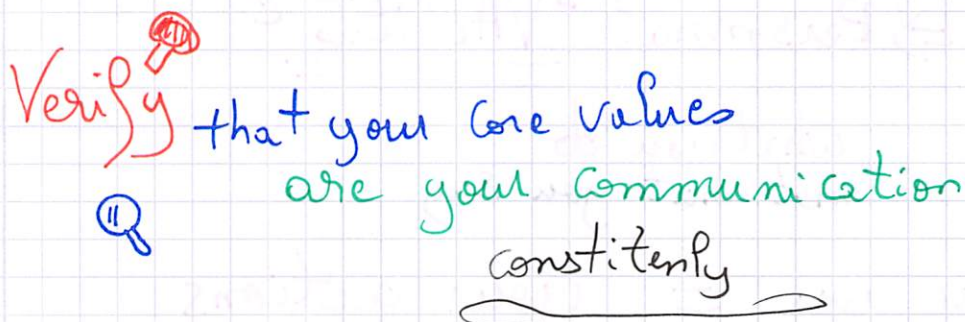 Verify that your core values
are your communication
constitenly